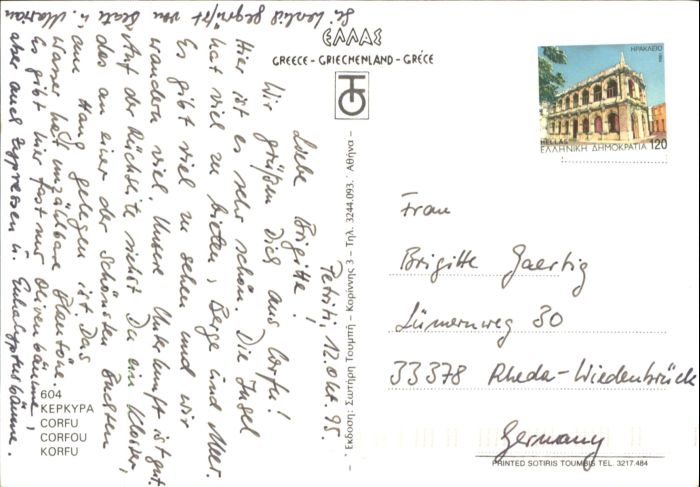 Petriti, 12. Okt. 95.
Liebe Brigitte!
Wir grüßen Dich aus Corfu!
Hier ist es sehr schön. Die Insel
hat viel zu bieten, Berge und Meer.
Es gibt viel zu sehen und wir
wandern viel. Unsere Unterkunft ist gut.
Auf der Rückseite siehst Du ein Kloster,
das an einer der schönsten Buchten
am Hang gelegen ist. Das
Wasser hat unzählbare Blautöne.
Es gibt hier fast nur Olivenbäume,
aber auch Zypressen u. Eukalyptusbäume.
Sei herzlich gegrüßt von Beate u.
604
ΚΕΡΚΥΡΑ
CORFU
CORFOU
KORFU
ΕΛΛΑΣ
GREECE - GRIECHENLAND - GRÈCE
– Εκδοση: Σωτήρη Τουμπή – Κορίννης 3 – Τηλ. 3244.093. Αθήνα –
ΗΡΑΚΛΕΙΟ
HELLAS
ΕΛΛΗΝΙΚΗ ΔΗΜΟΚΡΑΤΙΑ 120
Frau
Brigitte Gaertig
Lümernweg 30
33378 Rheda-Wiedenbrück
Germany
PRINTED SOTIRIS TOUMBIS TEL. 3217.484